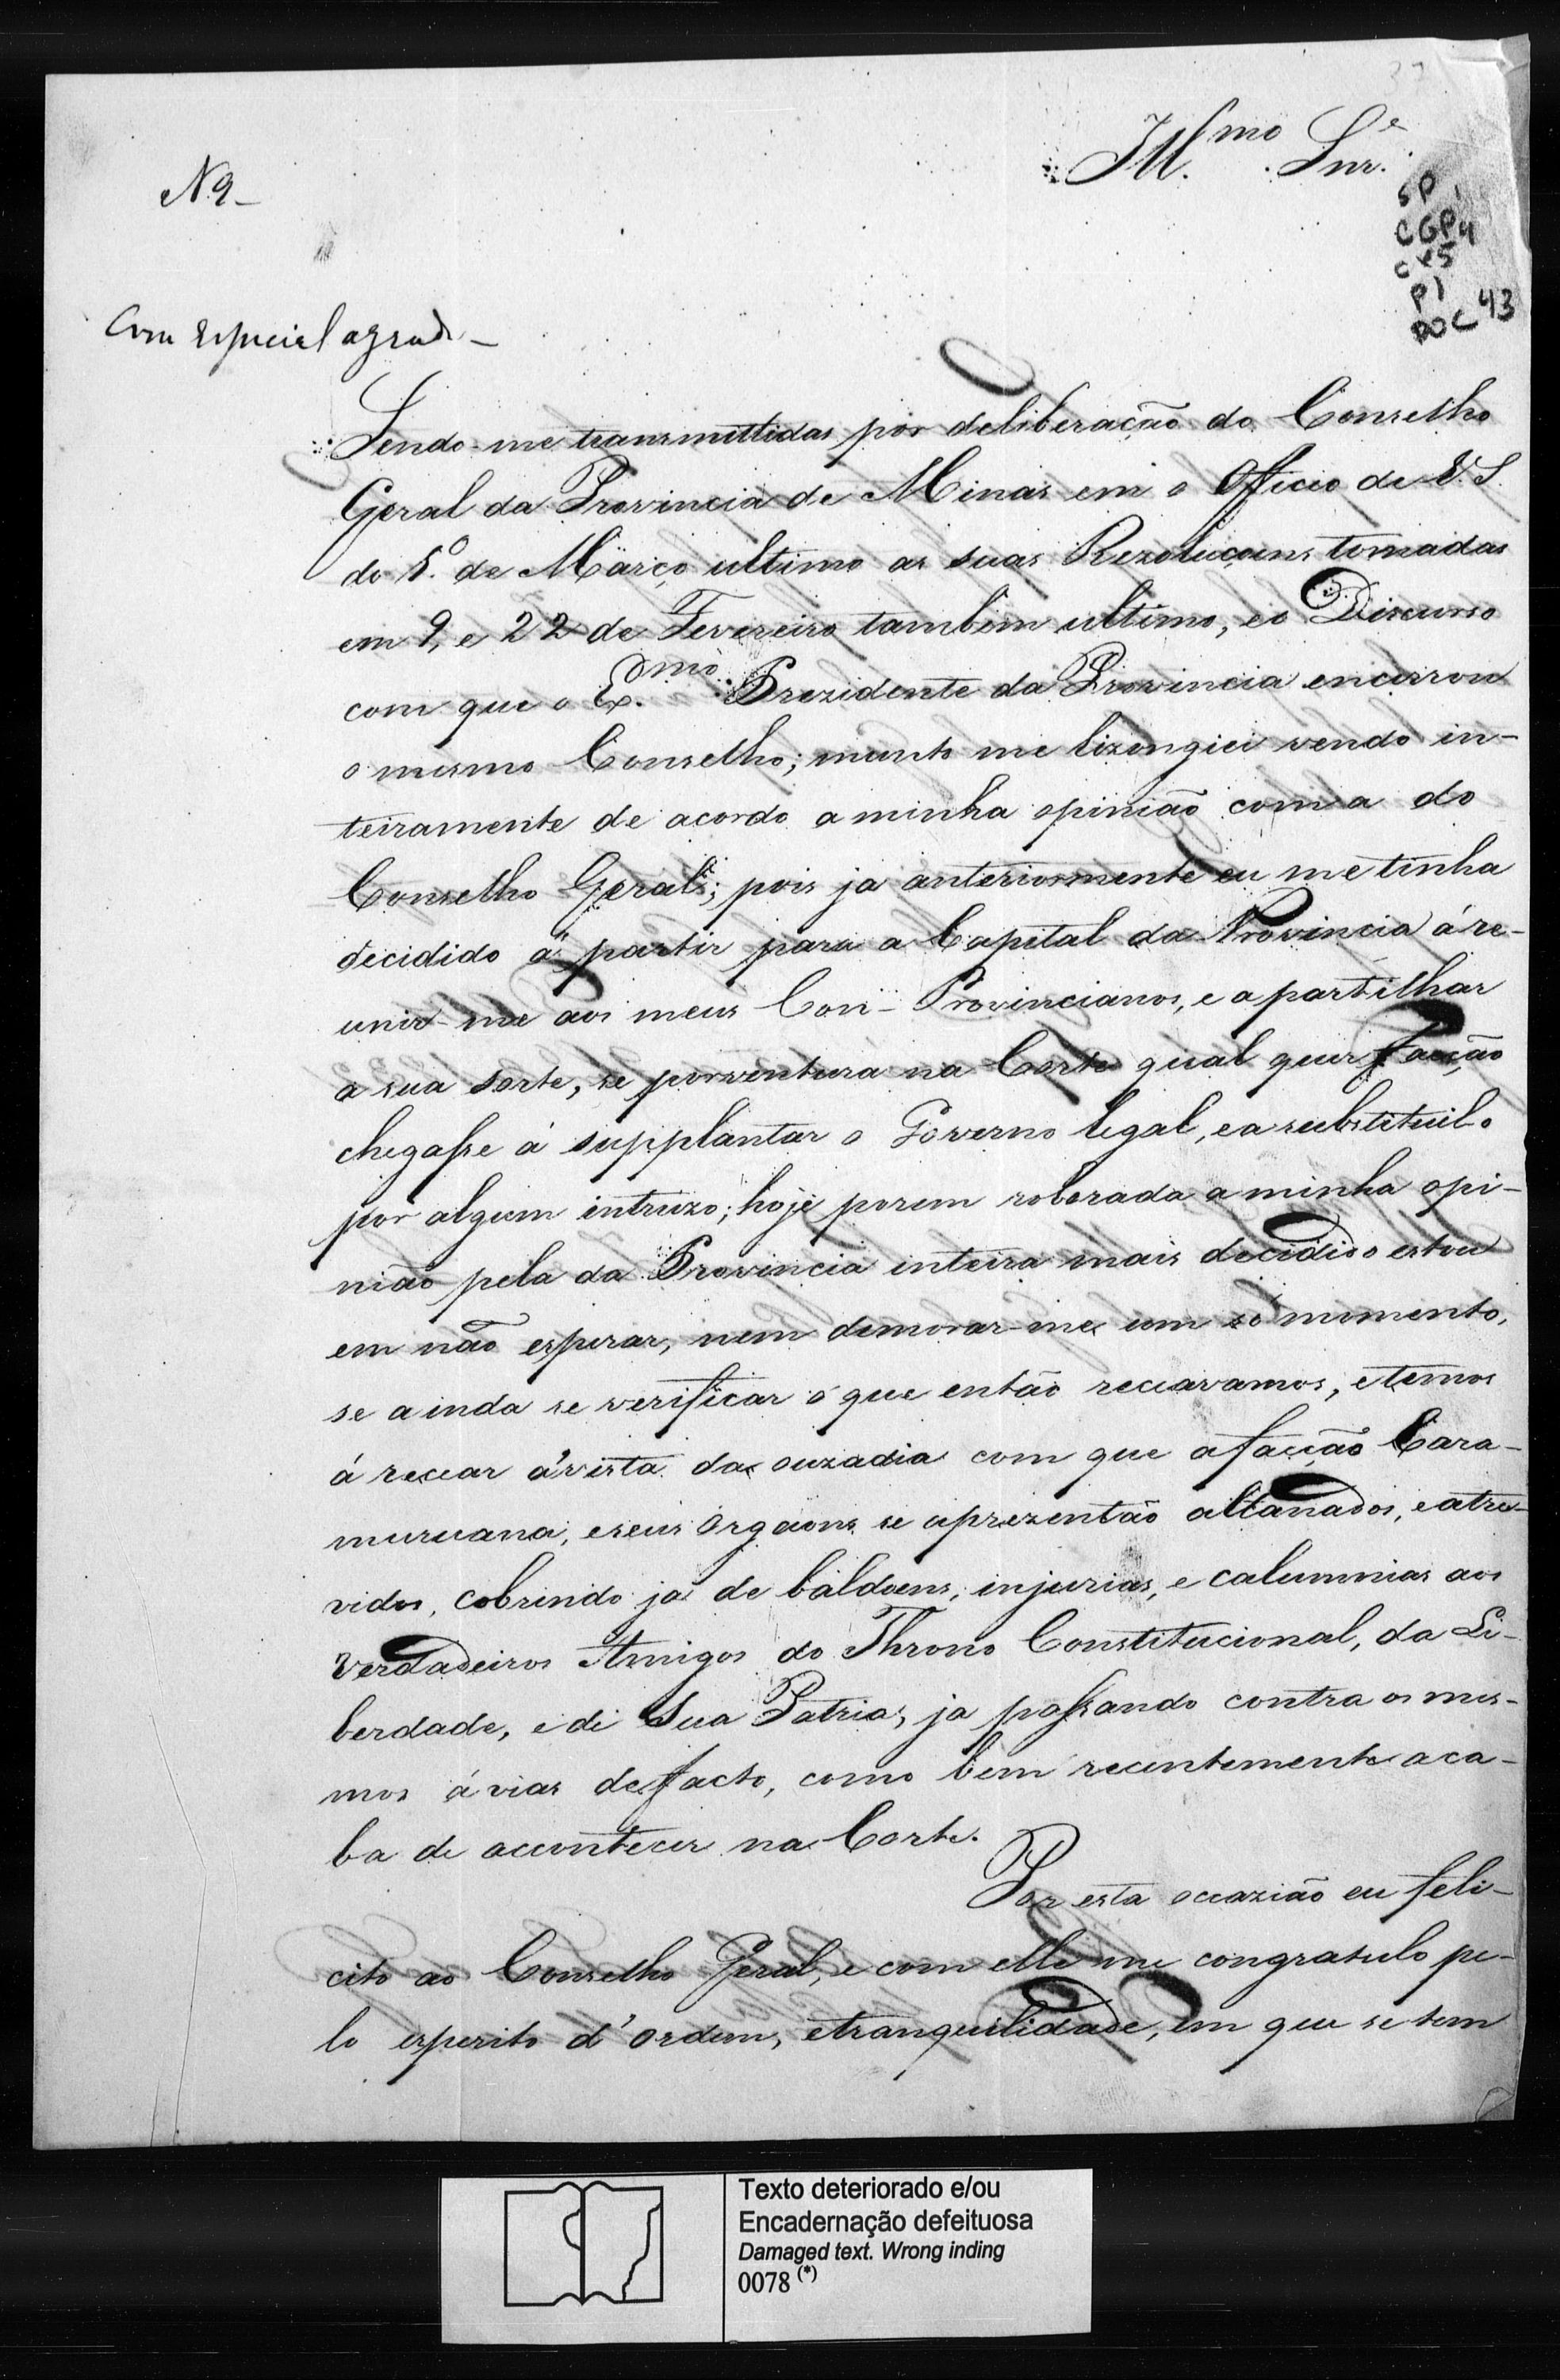 37
Ill.mo Snr.e
N.9_
SP 1
CGP4
Cx5
P1
DOC 43
Com especial agrado _
Sendo-me transmettidas por deliberação do Conselho
Geral da Provincia de Minas em o Officio de V.S.
do 1.º de Março ultimo as suas Rezoluçoens tomadas
em 9, e 22 de Fevereiro tambem ultimo, e o Discurso
com que o Ex.mo Prezidente da Provincia encerrou
o mesmo Conselho; muito me lizongiei vendo in-
teiramente de acordo a minha opinião com a do
Conselho Geral; pois ja anteriormente eu me tinha
decidido á partir para a Capital da Provincia á re-
unir-me aos meus Con-Provincianos, e a partilhar
a sua sorte, se porventura na Corte qual quer facção
chegasse á supplantar o Governo legal, e a substituil-o
por algum intruzo; hoje porem roborada a minha opi-
nião pela da Provincia inteira mais decidido estou
em não esperar, nem demorar-me um só momento,
se ainda se verificar o que então receavamos, e temos
á recear á vista da ouzadia com que a facção Cara-
muruana, e seus Orgaons se aprezentão altanados, e atre-
vidos, cobrindo ja de baldoens, injurias, e calumnias aos
verdadeiros Amigos do Throno Constitucional, da Li-
berdade, e de Sua Patria, ja passando contra os mes-
mos á vias de facto, como bem recentemente aca-
ba de acontecer na Corte.
Por esta occazião eu feli-
cito ao Conselho Geral, e com elle me congratulo pe-
lo esperito d'ordem, e tranquilidade, em que se tem
Texto deteriorado e/ou
Encadernação defeituosa
Damaged text. Wrong inding
0078 (*)